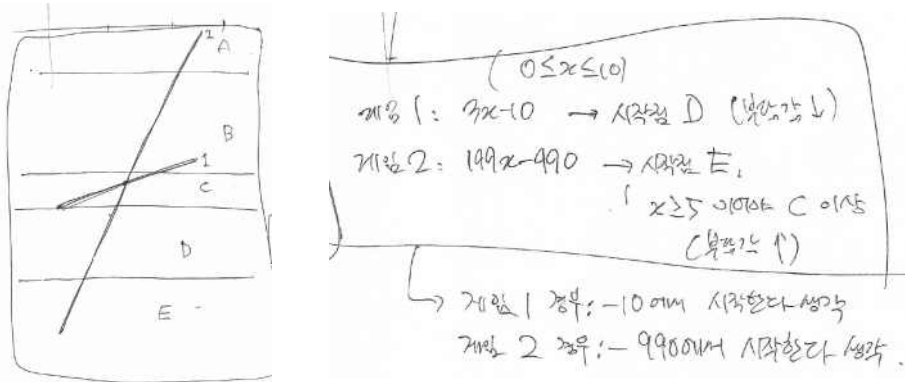 A
1
B
1
C
D
E
(0≤x≤10)
게임 1: 3x-10 → 시작점 D (부담감↓)
게임 2: 199x-990 → 시작점 E,
x≥5 이어야 C 이상
(부담감↑)
→ 게임 1 경우: -10에서 시작한다 생각
게임 2 경우: -990에서 시작한다 생각.